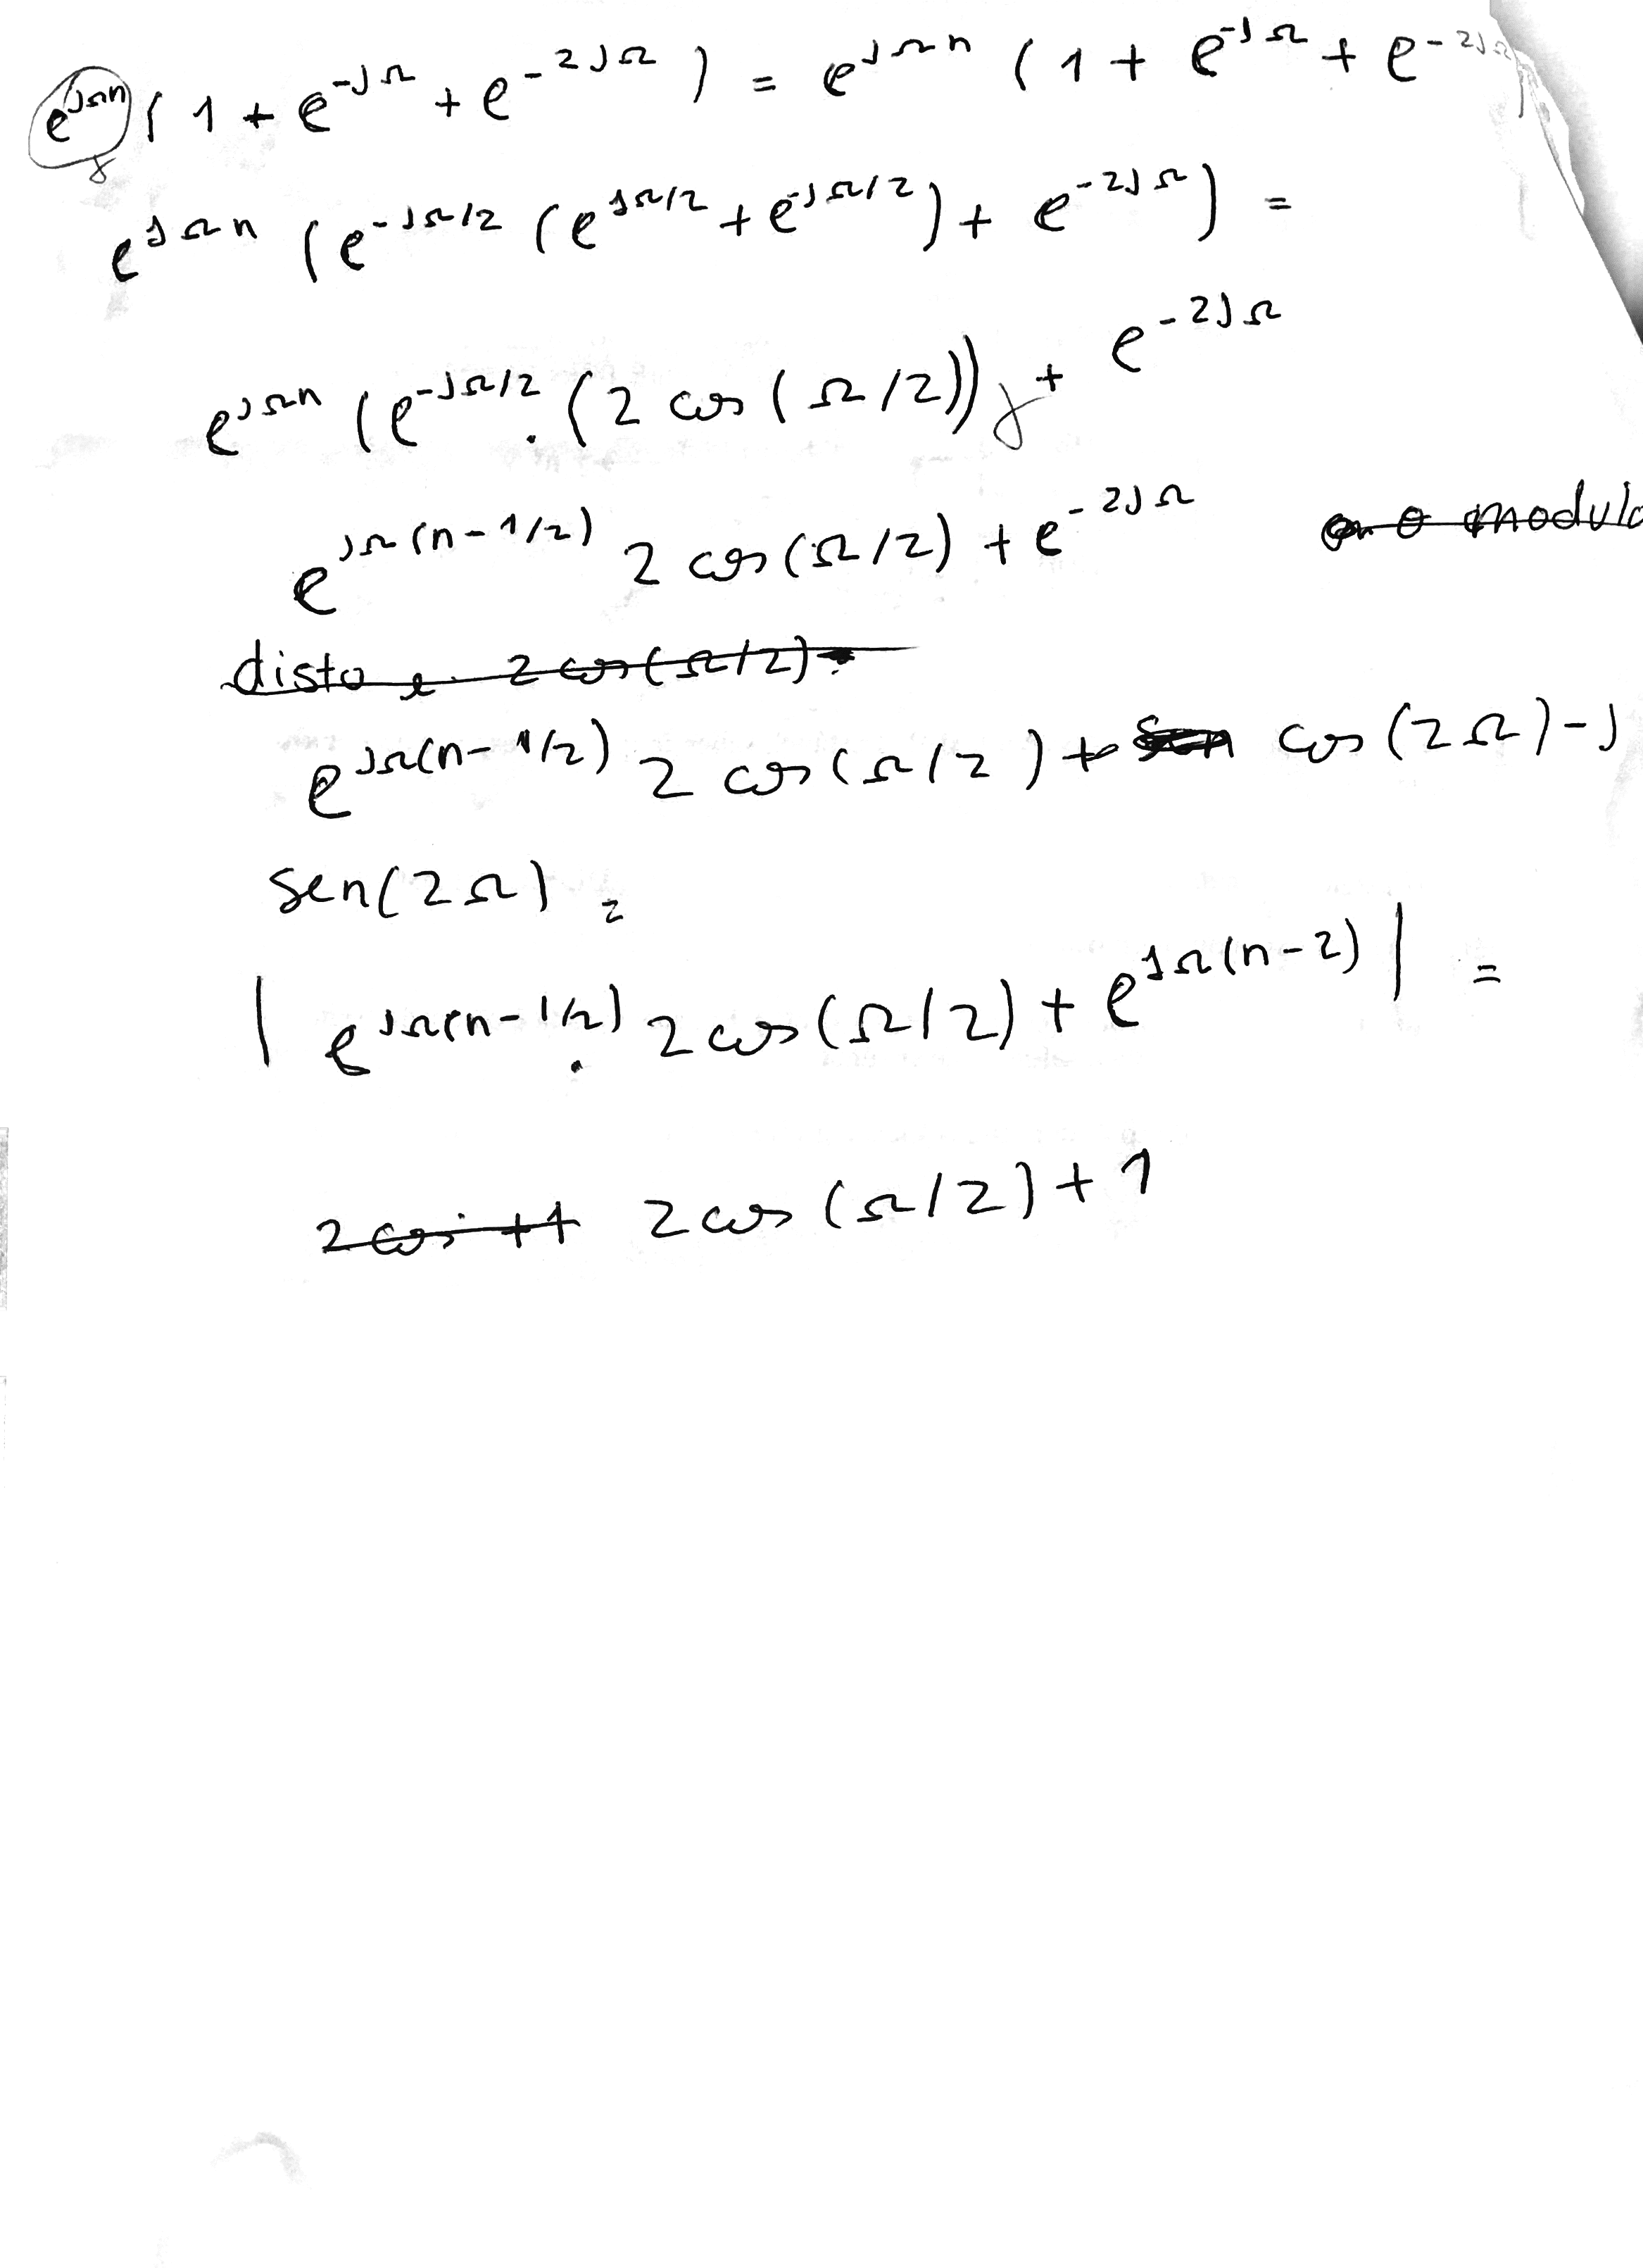 e^{jΩn} ( 1 + e^{-jΩ} + e^{-2jΩ} ) = e^{jΩn} ( 1 + e^{-jΩ} + e^{-2jΩ} )
e^{jΩn} ( e^{-jΩ/2} ( e^{jΩ/2} + e^{-jΩ/2} ) + e^{-2jΩ} ) =
e^{jΩn} ( e^{-jΩ/2} . ( 2 cos ( Ω/2 ) ) ) + e^{-2jΩ}
e^{jΩ(n-1/2)} 2 cos (Ω/2) + e^{-2jΩ} o modulo
disto e 2 cos(Ω/2).
e^{jΩ(n-1/2)} 2 cos (Ω/2) + sen cos (2Ω) - j
sen(2Ω) =
| e^{jΩ(n-1/2)} . 2 cos (Ω/2) + e^{jΩ(n-2)} | =
2 cos + 1 2 cos (Ω/2) + 1